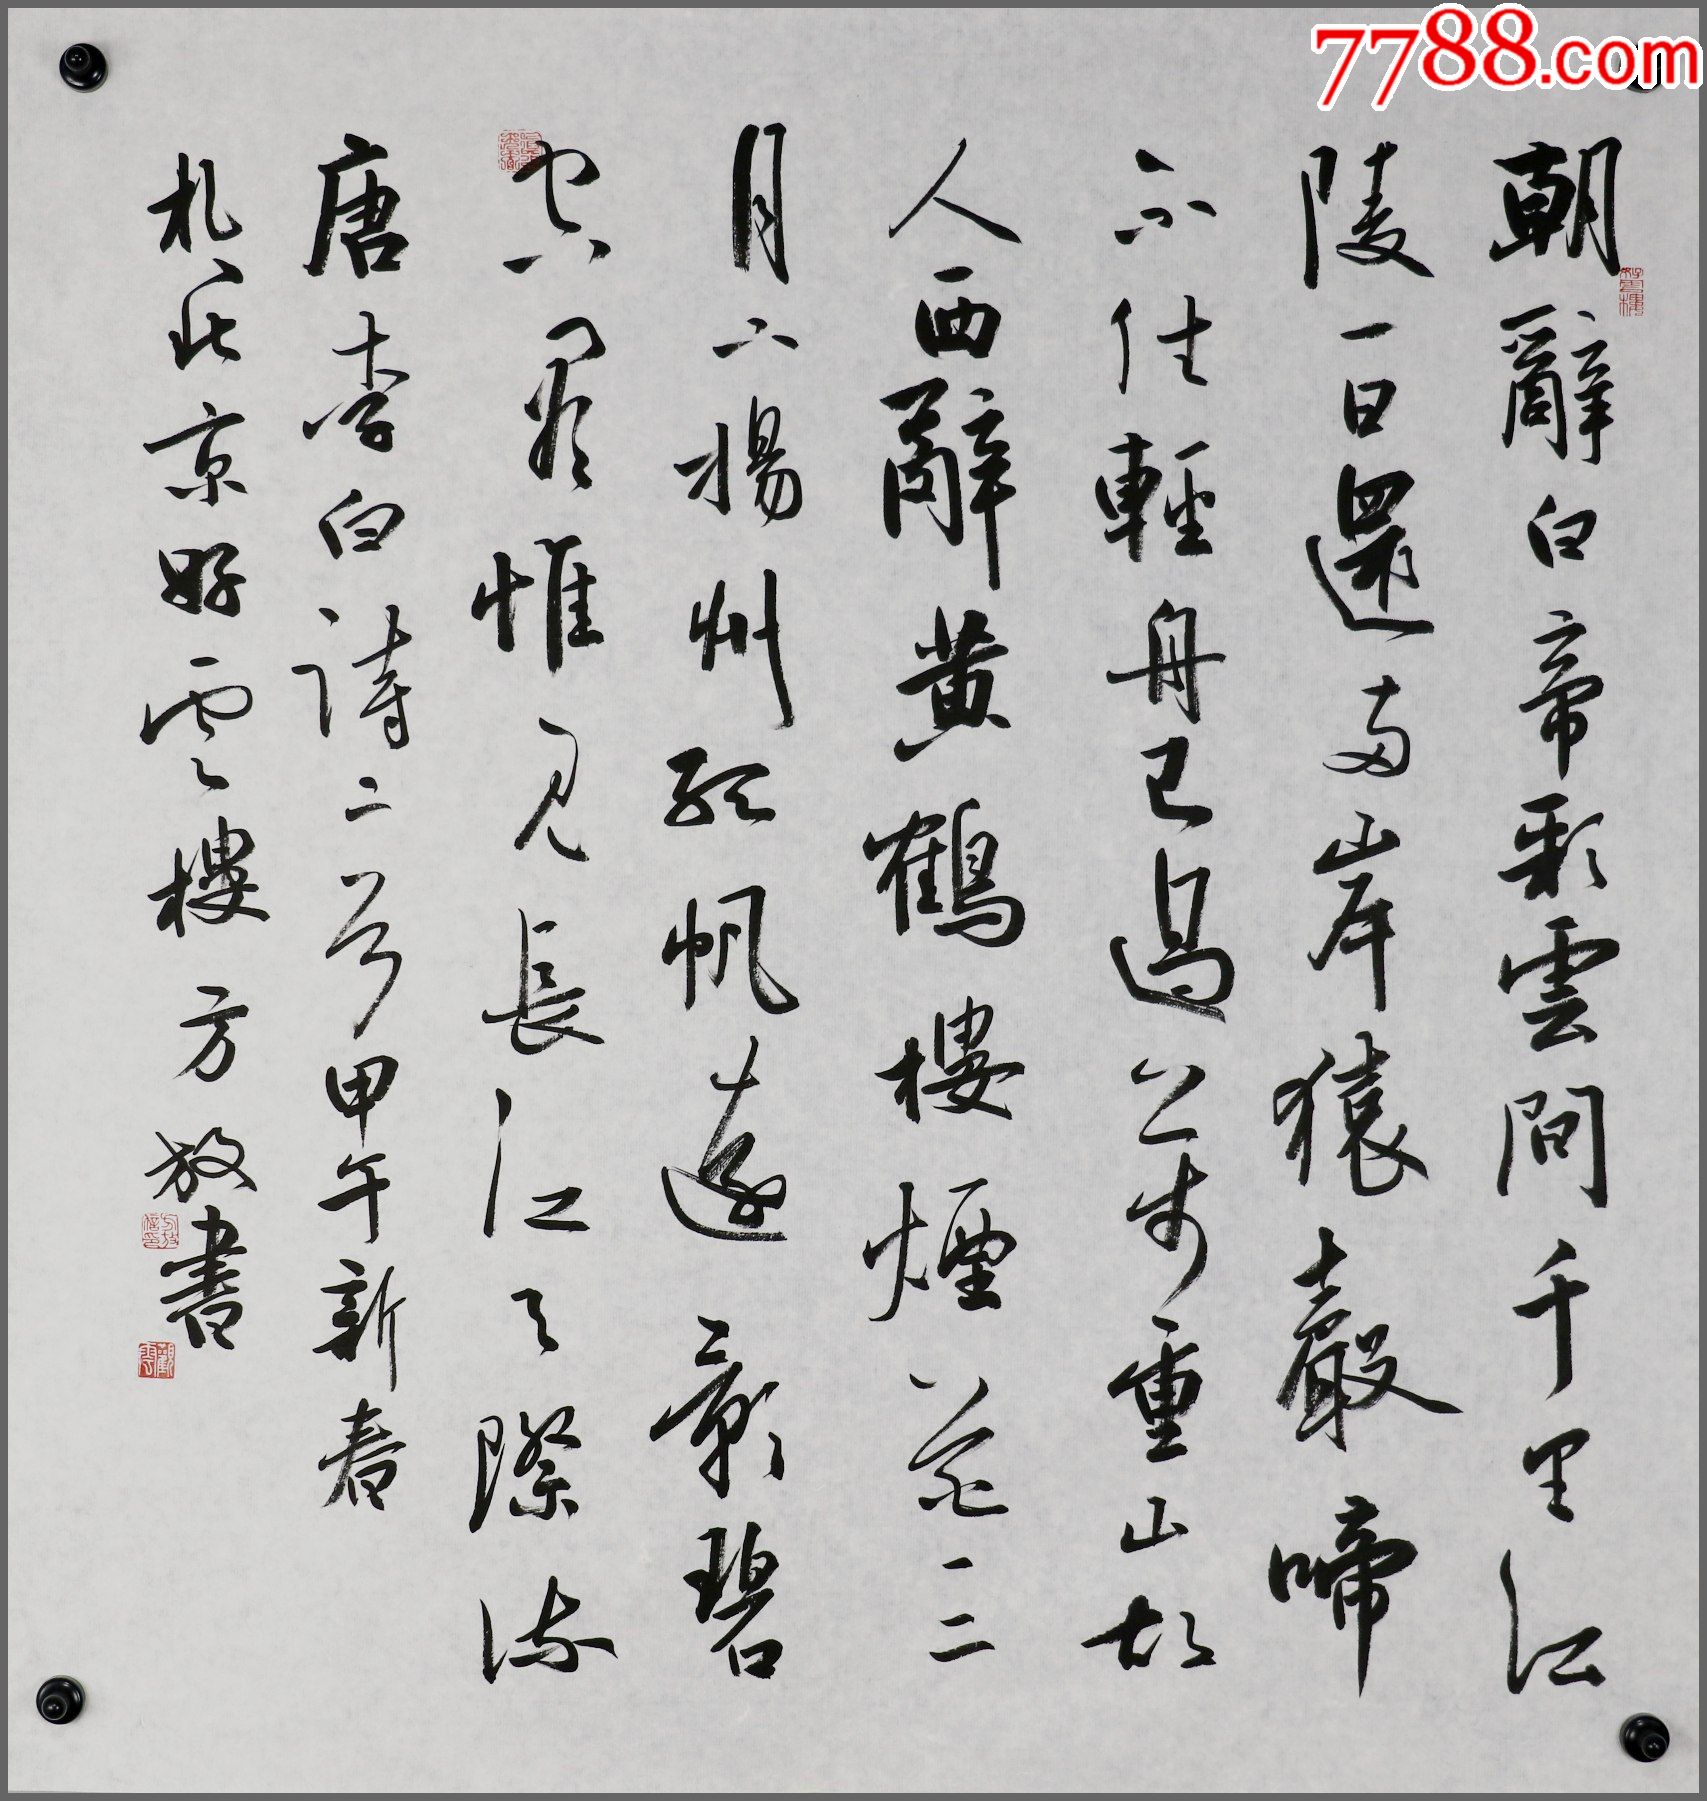 7788.com
朝辭白帝彩雲間千里江
陵一日還兩岸猿聲啼
不住輕舟已過萬重山故
人西辭黃鶴樓煙花三
月下揚州孤帆遠影碧
空盡惟見長江天際流
唐李白詩二首甲午新春
札北京好雲樓方放書
好雲樓